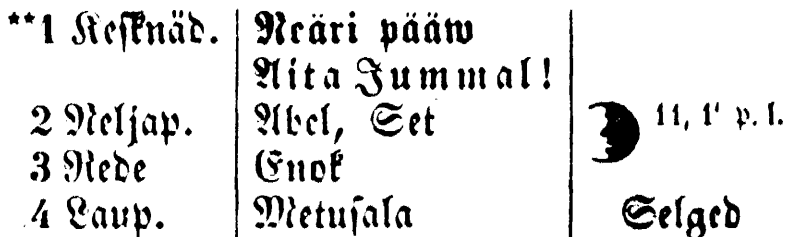 **1 Keſknäd. Neäri pääw
Aita Jummal!
2 Neljap. Abel, Set 11, 1' p. l.
3 Rede Enok
4 Laup. Metuſala Selged